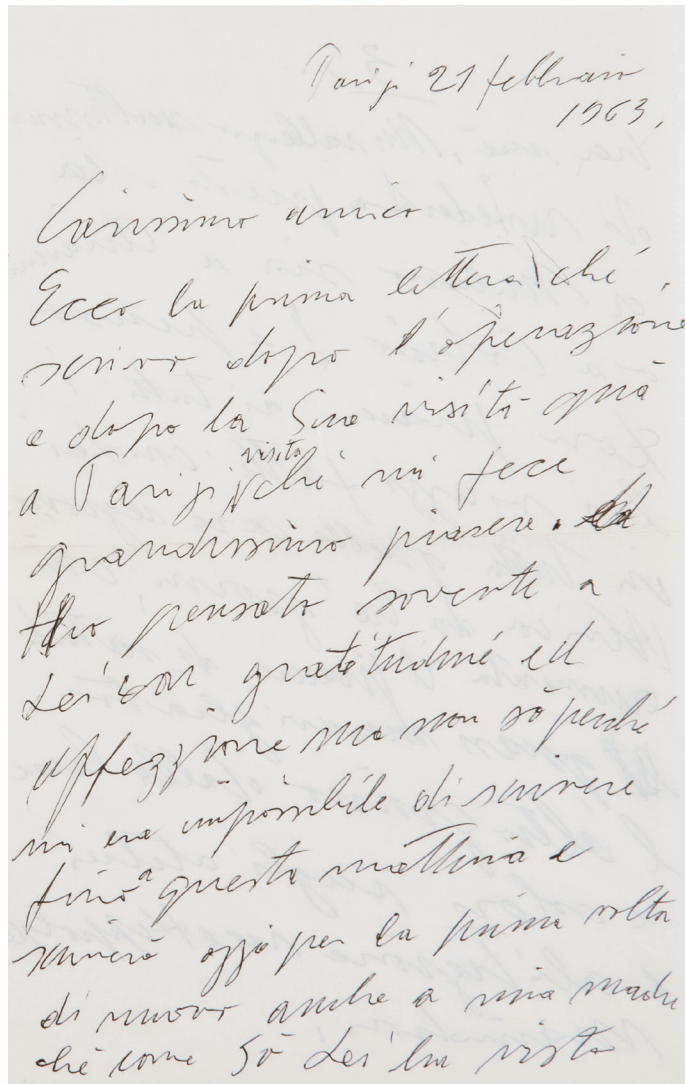 Parigi 21 febbraio
1963.
Carissimo amico
Ecco la prima lettera ché
scrivo dopo l'operazione
e dopo la Sua visità quà
a Parigi, visita ché mi fece
grandissimo piacere.
Ho pensato sovente a
Lei con gratitudiné ed
affezzione ma non sò perché
mi era impossibile di scrivere
fino a questa mattina e
scriverò oggi per la prima volta
di nuovo anche a mia madre
ché come sò Lei ha visto